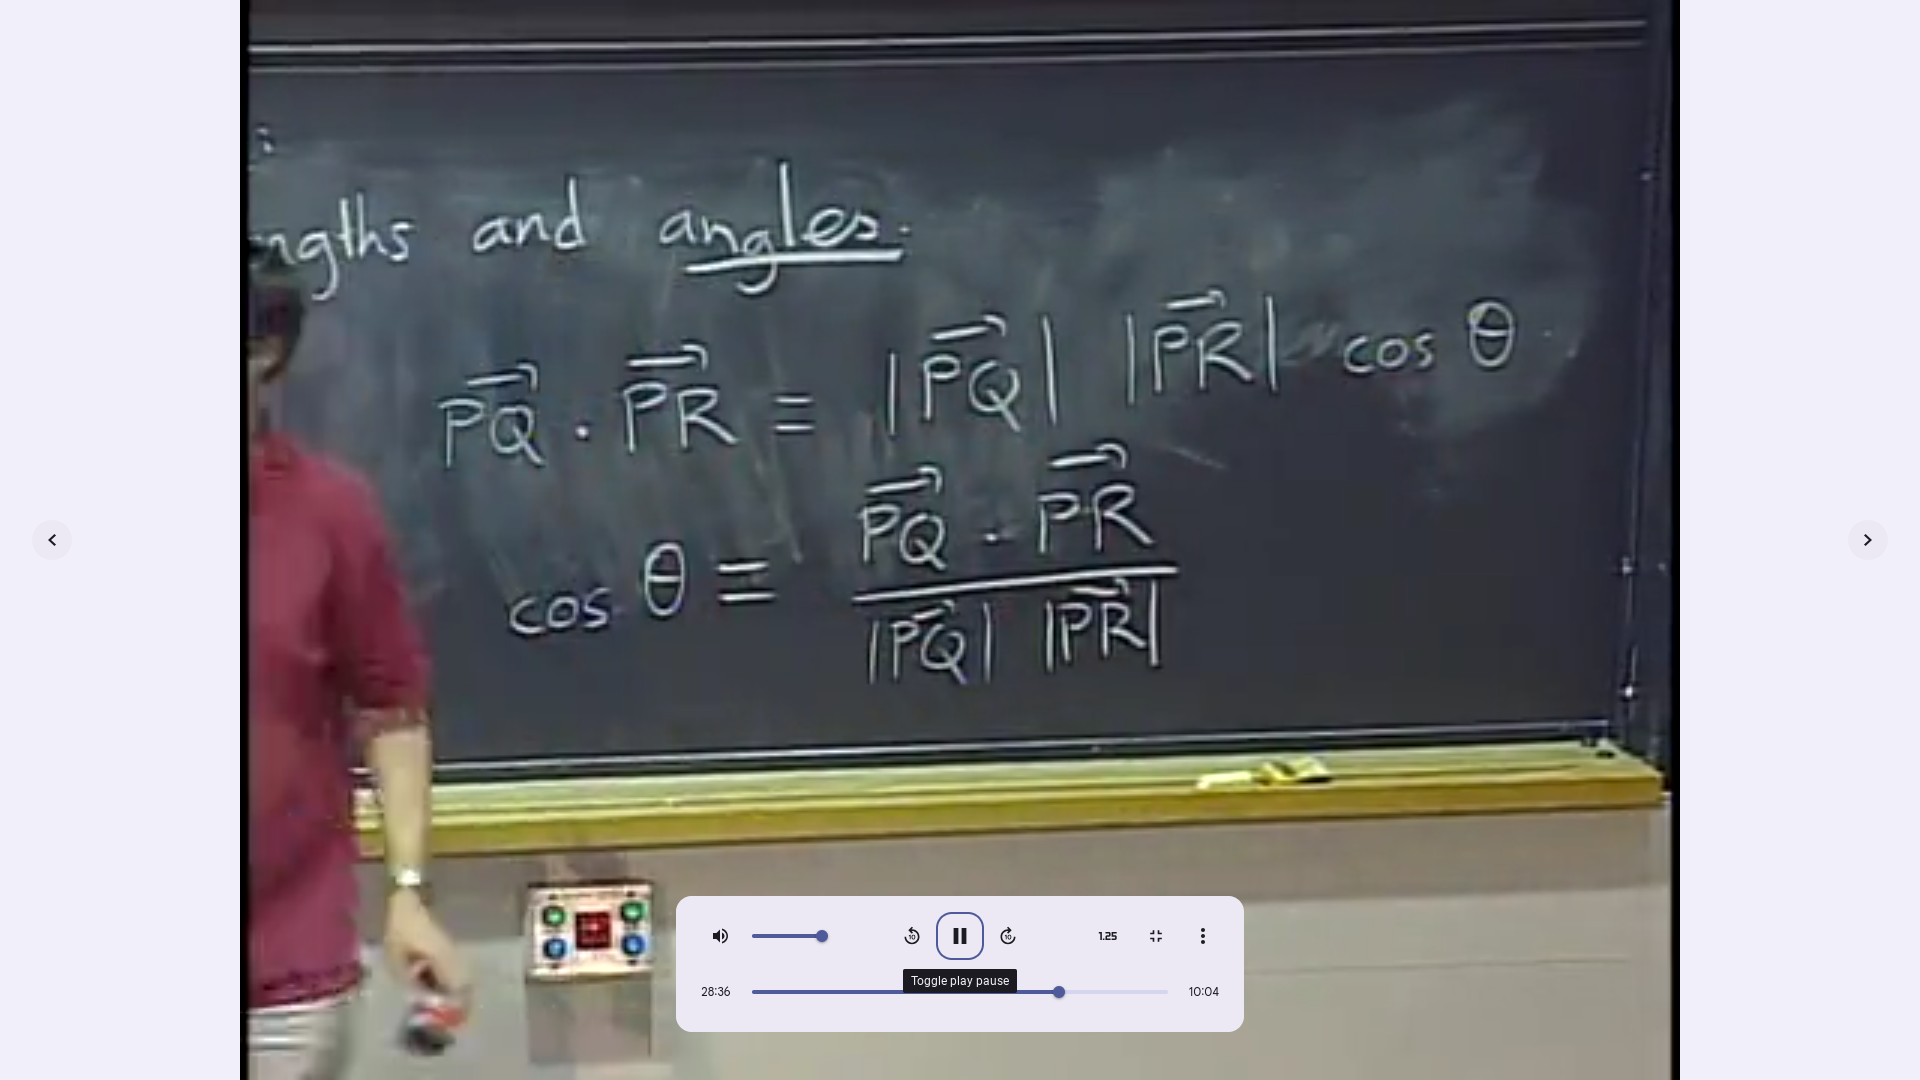 ngths and angles.
PQ · PR = |PQ| |PR| cos θ
cos θ = PQ · PR / |PQ| |PR|
1.25
Toggle play pause
28:36
10:04